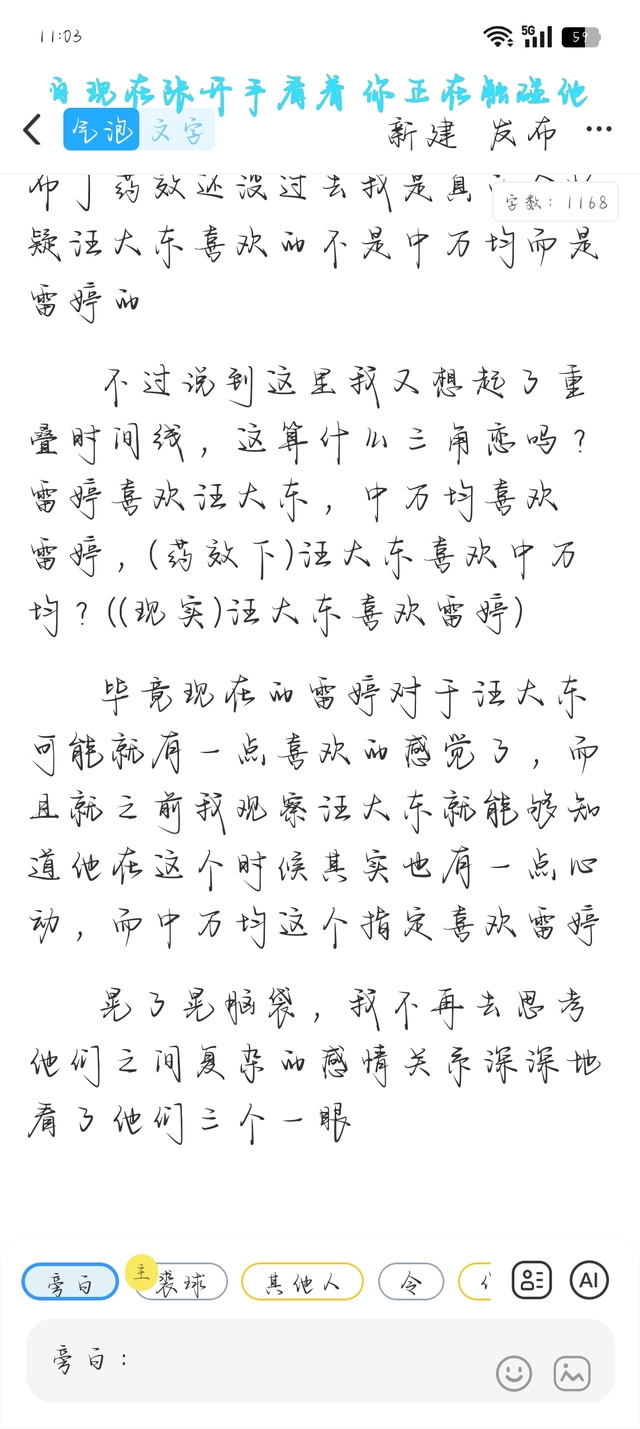 11:03
5G 59
现在张开手看着你正在触碰他
气泡 文字 新建 发布 ···
字数：1168
布了药效还没过去我是真的
疑汪大东喜欢的不是中万均而是
雷婷的
不过说到这里我又想起了重
叠时间线，这算什么三角恋吗？
雷婷喜欢汪大东，中万均喜欢
雷婷，(药效下)汪大东喜欢中万
均？((现实)汪大东喜欢雷婷)
毕竟现在的雷婷对于汪大东
可能就有一点喜欢的感觉了，而
且就之前我观察汪大东就能够知
道他在这个时候其实也有一点心
动，而中万均这个指定喜欢雷婷
晃了晃脑袋，我不再去思考
他们之间复杂的感情关系深深地
看了他们三个一眼
旁白 主 裘球 其他人 令 AI
旁白：